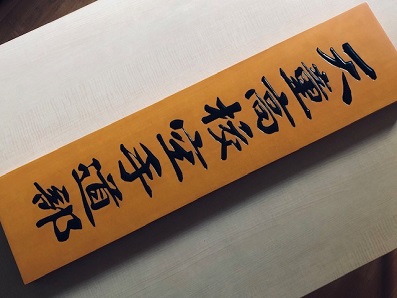 天童高校空手道部